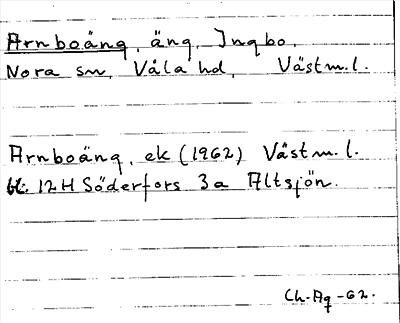 Arnboäng, äng, Ingbo,
Nora sn, Våla hd, Västm.l.
Arnboäng, ek (1962) Västm.l.
bl. 12H Söderfors 3a Altsjön.
Ch.Ag -62.